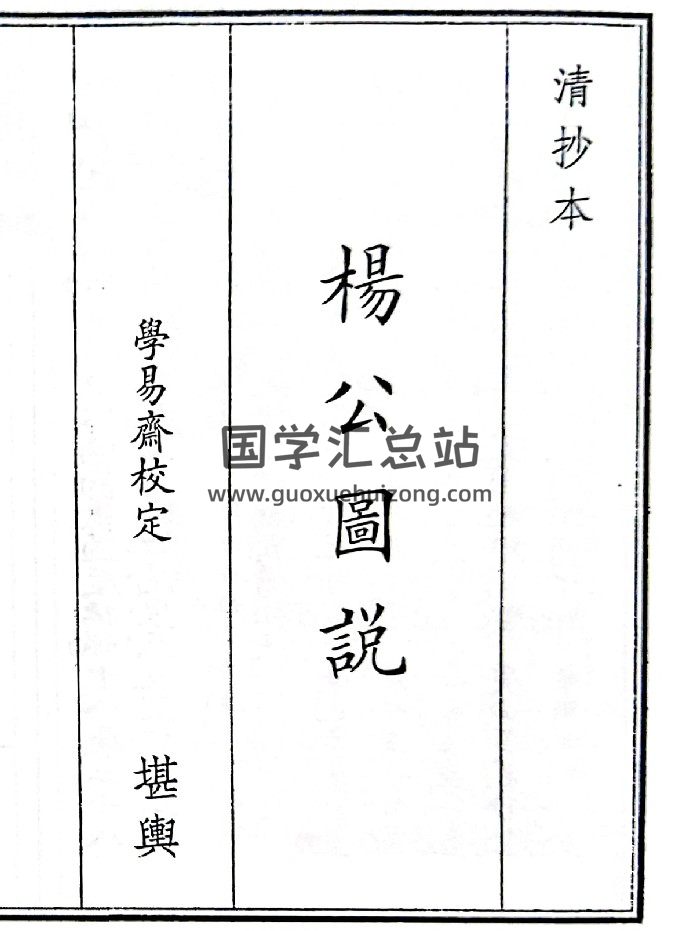 清抄本
楊公圖説
學易齋校定
堪輿
国学汇总站
www.guoxuehuizong.com